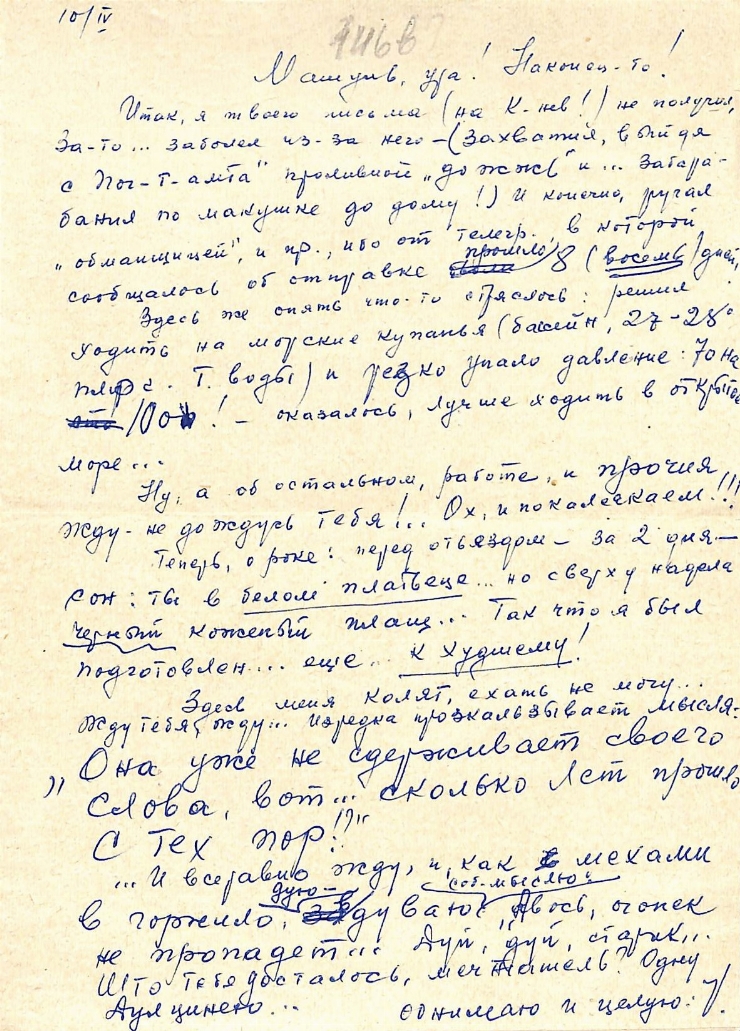 10/IV
Машунь, ура! Наконец-то!
Итак, я твоего письма (на К-нев!) не получил,
За-то... заболел из-за него - (Захватил, выйдя
с Поч-т-амта" проливной „дожжь" и... Забара-
банил по макушке до дому!) И конечно, ругал
„обманщицей", и пр., ибо от телегр., в которой
сообщалось об отправке прошло 8 (восемь) дней,
Здесь же опять что-то стряслось: решил
ходить на морские купанья (басейн, 27-28°
Т. воды) и резко упало давление: 70 на
100! - оказалось, лучше ходить в открытое
море...
Ну, а об остальном, работе, и прочия
жду - не дождусь тебя!... Ох, и покалякаем!!!
Теперь, о роке: перед отъездом - за 2 дня -
сон: ты в белом платьеце... но сверху надела
черный коженый плащ... Так что я был
подготовлен... еще... к худшему!
Здесь меня колят, ехать не могу...
Жду тебя, жду... Изредка проскальзывает мысля:
„Она уже не сдерживает своего
слова, вот... сколько лет прошло
с тех пор!?"
... И всеравно жду, и, как мехами
в горнило, дую-дуваю, соб-мыслю: „Авось, огонек
не пропадет... Дуй, дуй, старик...
Што тебе досталось, мечтатель? Одну
Дулцинею... обнимаю и целую: